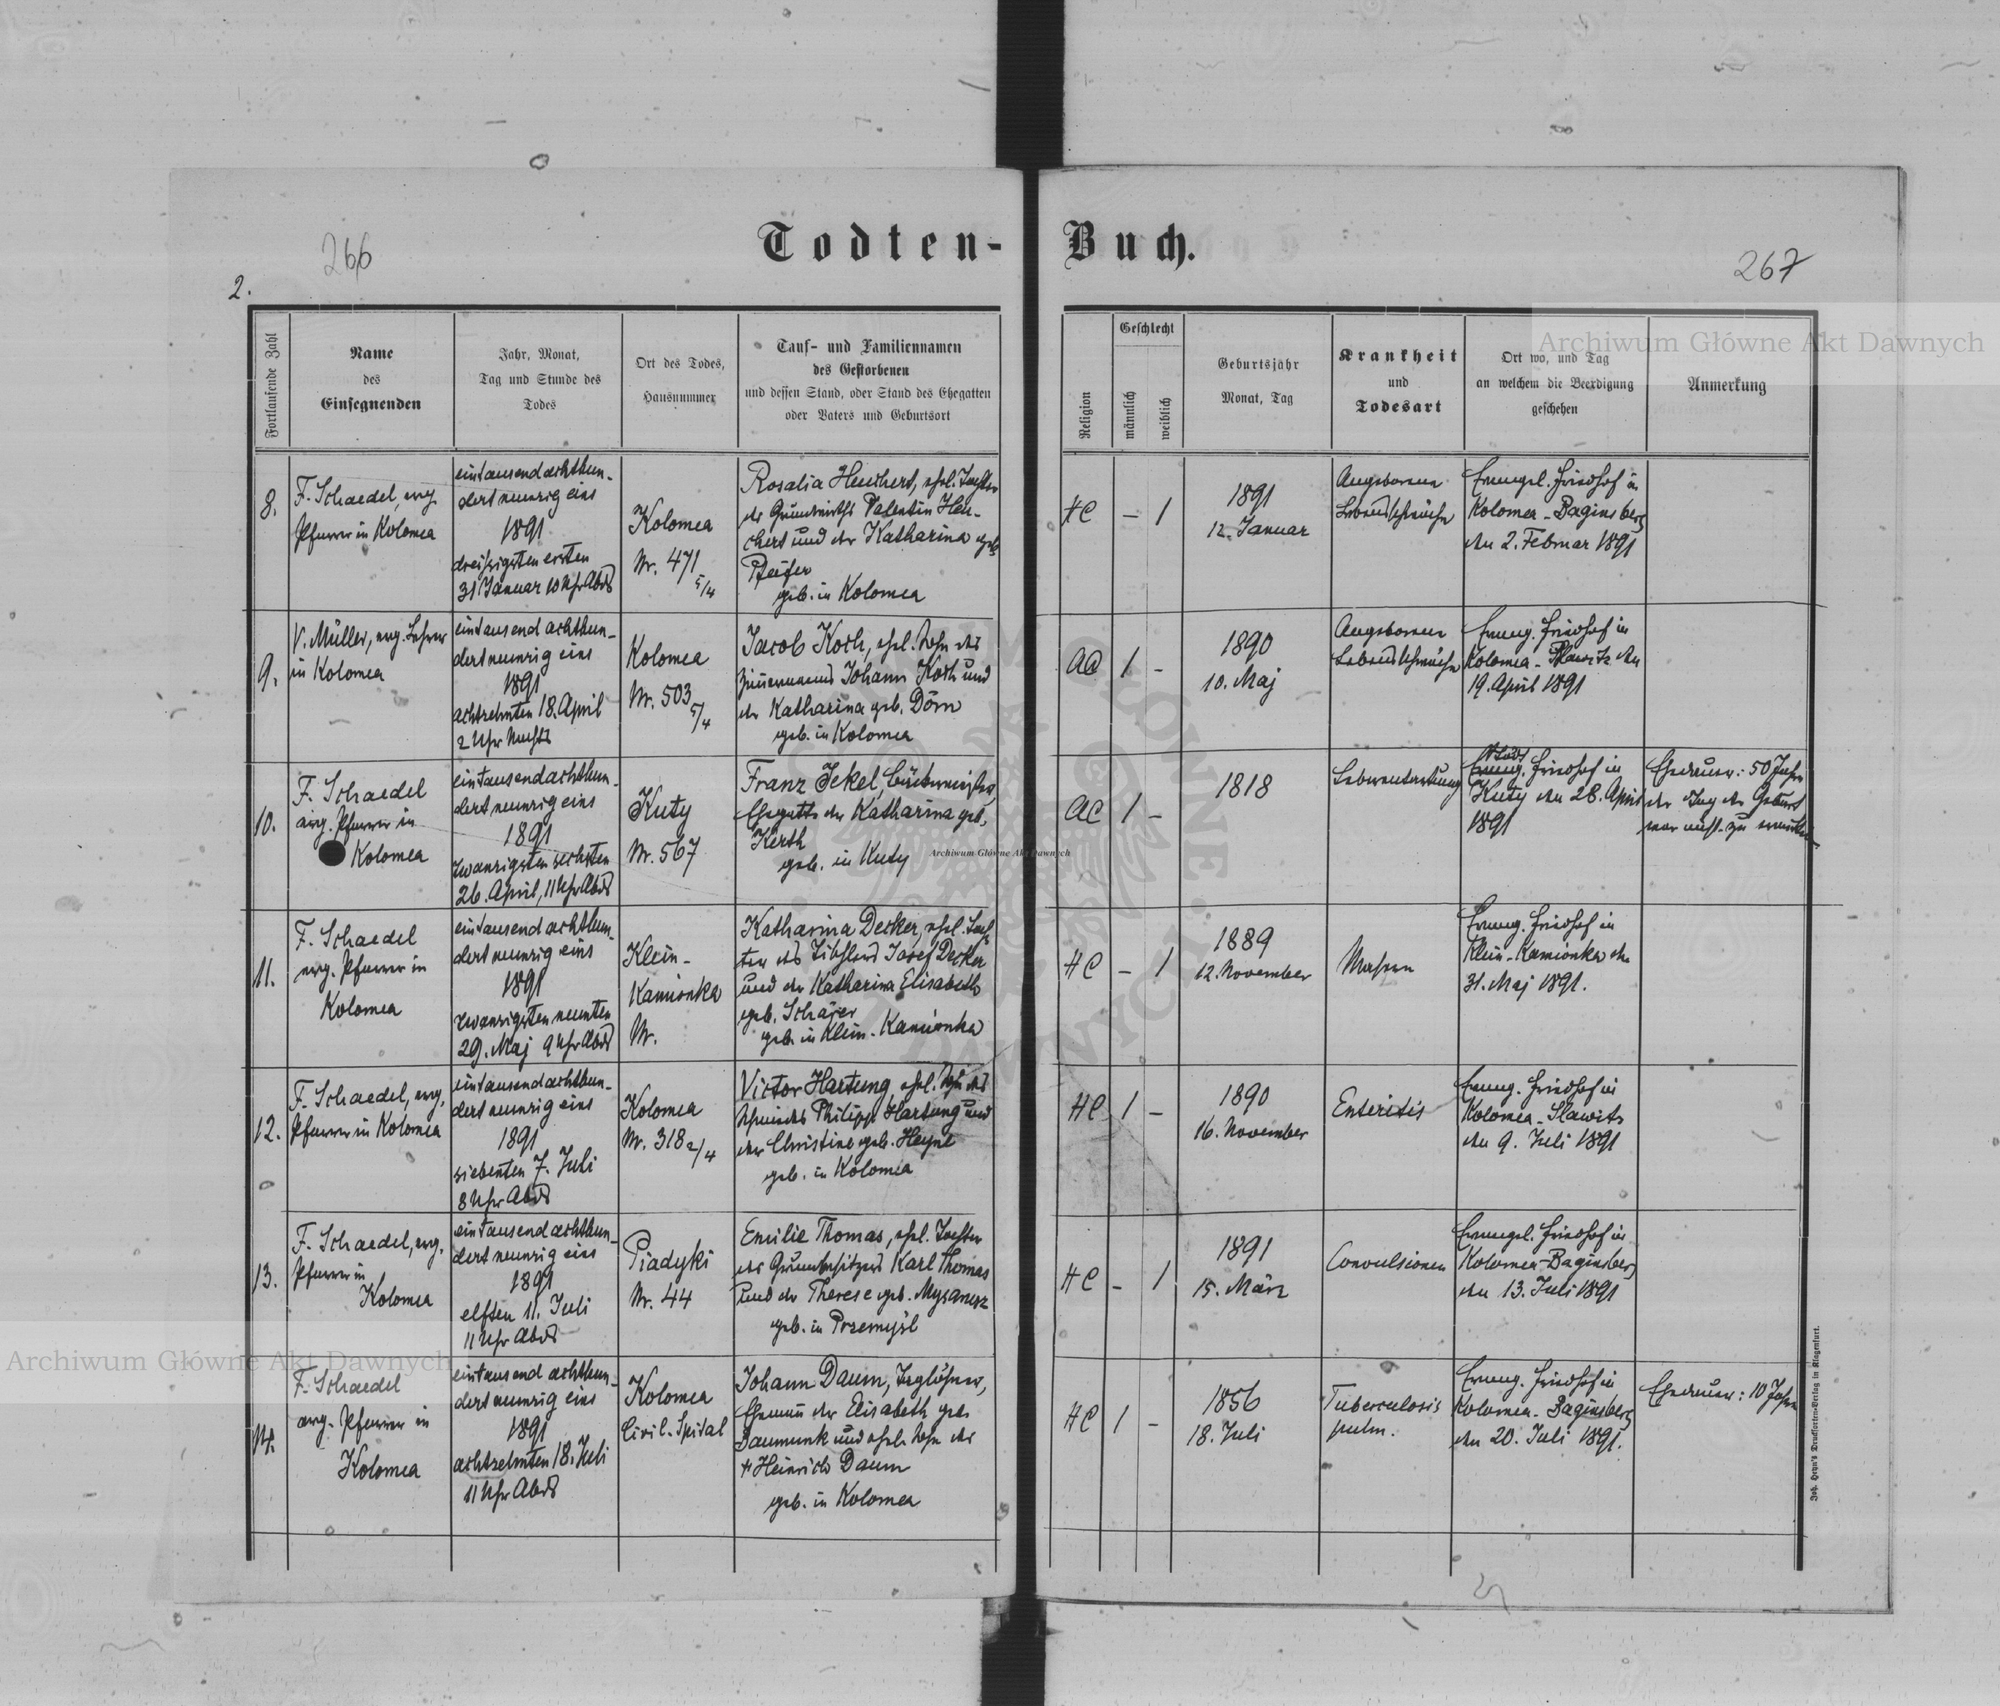 266
Todten-Buch.
267
2.
Fortlaufende Zahl
Name
des
Einsegnenden
Jahr, Monat,
Tag und Stunde des
Todes
Ort des Todes,
Hausnummer
Tauf- und Familiennamen
des Gestorbenen
und dessen Stand, oder Stand des Ehegatten
oder Vaters und Geburtsort
Religion
Geschlecht
männlich
weiblich
Geburtsjahr
Monat, Tag
Krankheit
und
Todesart
Ort wo, und Tag
an welchem die Beerdigung
geschehen
Anmerkung
8.
F. Schaedel, evg.
Pfarrer in Kolomea
eintausendachthun-
dertneunzig eins
1891
dreißigsten ersten
31 Januar 10 Uhr Abds
Kolomea
Nr. 471 5/4
Rosalia Heuchert, ehel. Tochter
des Grundwirths Valentin Heu-
chert und der Katharina geb.
Pfeifer
geb. in Kolomea
HC
– 1
1891
12. Januar
Angeborene
Lebensschwäche
Evangel. Friedhof in
Kolomea-Baginsberg
den 2. Februar 1891
9.
V. Müller, evg. Lehrer
in Kolomea
eintausend achthun-
dertneunzig eins
1891
achtzehnten 18. April
2 Uhr Nachts
Kolomea
Nr. 503 5/4
Jacob Koch, ehel. Sohn des
Zimmermanns Johann Koch und
der Katharina geb. Dörn
geb. in Kolomea
AC
1 –
1890
10. Maj
Angeborene
Lebensschwäche
Evang. Friedhof in
Kolomea - Slawitz den
19. April 1891
10.
F. Schaedel
evg. Pfarrer in
Kolomea
eintausendachthun-
dertneunzig eins
1891
zwanzigsten sechsten
26. April, 11 Uhr Abds
Kuty
Nr. 567
Franz Jekel,
Ehegatte der Katharina geb.
Kerth
geb. in Kuty
AC
1 –
1818
Leberentartung
Städt.
Evang. Friedhof in
Kuty den 28. April
1891
Ehedauer: 50 Jahre
der Tag der Geburt
war nicht zu ermitteln
11.
F. Schaedel
evg. Pfarrer in
Kolomea
eintausend achthun-
dertneunzig eins
1891
zwanzigsten neunten
29. Maj 9 Uhr Abds
Klein-
Kamionka
Nr.
Katharina Decker, ehel. Toch-
ter des Josef Decker
und der Katharina Elisabeth
geb. Schäfer
geb. in Klein-Kamionka
HC
– 1
1889
12. November
Masern
Evang. Friedhof in
Klein-Kamionka den
31. Maj 1891.
12.
F. Schaedel, evg.
Pfarrer in Kolomea
eintausendachthun-
dertneunzig eins
1891
siebenten 7. Juli
8 Uhr Abds
Kolomea
Nr. 318 2/4
Victor Hartung ehel. Sohn des
Schmiedes Philipp Hartung und
der Christine geb. Heyne
geb. in Kolomea
HC
1 –
1890
16. November
Enteritis
Evang. Friedhof in
Kolomea-Slawitz
den 9. Juli 1891
13.
F. Schaedel, evg.
Pfarrer in
Kolomea
eintausend achthun-
dertneunzig eins
1891
elften 11. Juli
11 Uhr Abds
Piadyki
Nr. 44
Emilie Thomas, ehel. Tochter
des Grundbesitzers Karl Thomas
und der Therese geb.
geb. in Przemyśl
HC
– 1
1891
15. März
Convulsionen
Evangel. Friedhof in
Kolomea-Baginsberg
den 13. Juli 1891
14.
F. Schaedel
evg. Pfarrer in
Kolomea
eintausend achthun-
dertneunzig eins
1891
achtzehnten 18. Juli
11 Uhr Abds
Kolomea
Civil-Spital
Johann Daum, Taglöhner,
Ehemann der Elisabeth geb.
Baumunk und ehel. Sohn des
† Heinrich Daum
geb. in Kolomea
HC
1 –
1856
18. Juli
Tuberculosis
pulm.
Evang. Friedhof in
Kolomea-Baginsberg
den 20. Juli 1891.
Ehedauer: 10 Jahre
Joh. Heyn's Drucksorten-Verlag in Klagenfurt.
Archiwum Główne Akt Dawnych
Archiwum Główne Akt Dawnych
Archiwum Główne Akt Dawnych